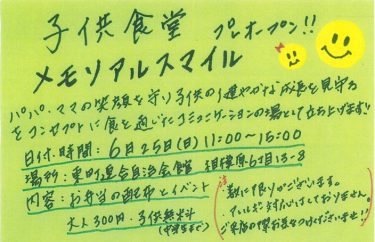 子供食堂 プレオープン!!
メモリアルスマイル
パパ・ママの笑顔を守り子供の健やかな成長を見守る
をコンセプトに食を通じたコミュニケーションの場として立ち上げます!!
日付・時間:6月25日(日)11:00~15:00
場所:東町連合自治会館 相模原6丁目13-8
内容:お弁当の配布とイベント
大人300円・子供無料
(中学生まで)
注 数に限りがございます。
アレルギー対応はしておりません。
ご来店の際お気をつけくださいませ!!